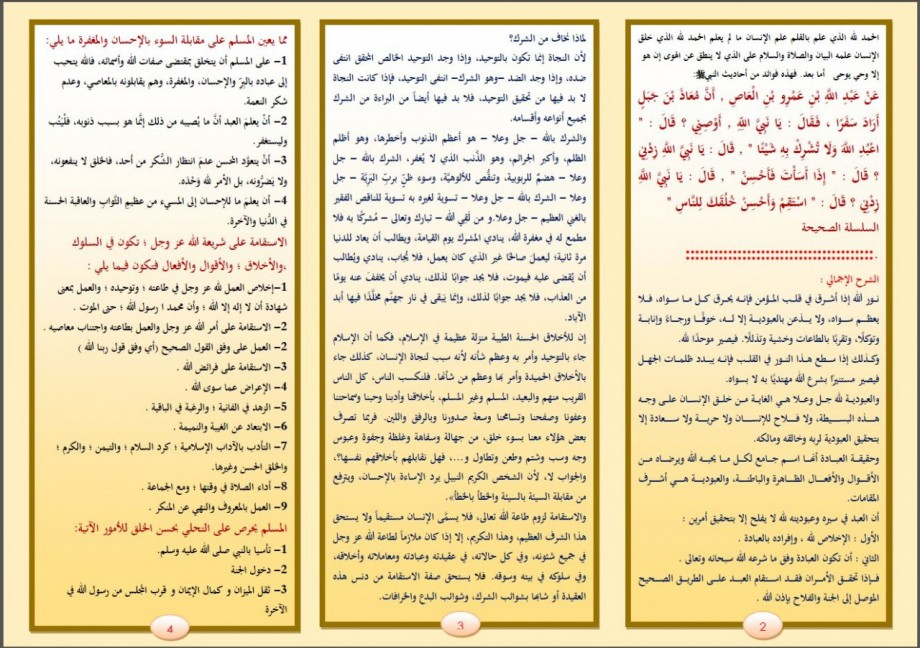 الحمد لله الذي علم بالقلم علم الإنسان ما لم يعلم الحمد لله الذي خلق
الإنسان علمه البيان والصلاة والسلام على الذي لا ينطق عن الهوى إن هو
إلا وحي يوحى أما بعد. فهذه فوائد من أحاديث النبي ﷺ:
عَنْ عَبْدِ اللَّهِ بْنِ عَمْرِو بْنِ الْعَاصِ , أَنَّ مُعَاذَ بْنَ جَبَلٍ
أَرَادَ سَفَرًا ، فَقَالَ : يَا نَبِيَّ اللَّهِ , أَوْصِنِي ؟ قَالَ : "
اعْبُدِ اللَّهَ وَلَا تُشْرِكْ بِهِ شَيْئًا " , قَالَ : يَا نَبِيَّ اللَّهِ زِدْنِي
؟ قَالَ : " إِذَا أَسَأْتَ فَأَحْسِنْ " , قَالَ : يَا نَبِيَّ اللَّهِ
زِدْنِي ؟ قَالَ : " اسْتَقِمْ وَأَحْسِنْ خُلُقَكَ لِلنَّاسِ "
السلسلة الصحيحة
الشرح الإجمالي :
نور الله إذا أشرق في قلب المؤمن فإنه يحرق كل ما سواه، فلا
يعظم سواه، ولا يذعن بالعبودية إلا له، خوفًا ورجاءً وإنابة
وتوكلًا، وتقربًا بالطاعات وخشية وتذللًا. فيصير موحدًا لله.
وكذلك إذا سطع هذا النور في القلب فإنه يبدد ظلمات الجهل
فيصير مستنيرًا بشرع الله مهتديًا به لا بسواه.
والعبودية لله جل وعلا هي الغاية من خلق الإنسان على وجه
هذه البسيطة، ولا فلاح للإنسان ولا حرية ولا سعادة إلا
بتحقيق العبودية لربه وخالقه ومالكه.
وحقيقة العبادة أنها اسم جامع لكل ما يحبه الله ويرضاه من
الأقوال والأفعال الظاهرة والباطنة، والعبودية هي أشرف
المقامات.
أن العبد في سيره وعبوديته لله لا يفلح إلا بتحقيق أمرين :
الأول : الإخلاص لله ، وإفراده بالعبادة .
الثاني : أن تكون العبادة وفق ما شرعه الله سبحانه وتعالى .
فإذا تحقق الأمران فقد استقام العبد على الطريق الصحيح
الموصل إلى الجنة والفلاح بإذن الله .
2
لماذا نخاف من الشرك؟
لأن النجاة إنما تكون بالتوحيد، وإذا وجد التوحيد الخالص المحقق انتفى
ضده، وإذا وجد الضد –وهو الشرك– انتفى التوحيد، فإذا كانت النجاة
لا بد فيها من تحقيق التوحيد، فلا بد فيها أيضاً من البراءة من الشرك
بجميع أنواعه وأقسامه.
والشرك بالله – جل وعلا – هو أعظم الذنوب وأخطرها، وهو أظلم
الظلم، وأكبر الجرائم، وهو الذَّنب الذي لا يُغفر، الشرك بالله – جل
وعلا – هضمٌ للربوبية، وتنقُّص للألوهيَّة، وسوء ظنٍّ بربِّ البَرِيَّة – جل
وعلا – الشرك بالله – جل وعلا – تسوية لغيره به تسوية للناقص الفقير
بالغني العظيم – جل وعلا. و من لَقِي الله – تبارك وتعالى – مُشركًا به فلا
مطمع له في مغفرة الله، ينادي المشرك يوم القيامة، ويطالب أن يعاد للدنيا
مرة ثانية؛ ليعمل صالحًا غير الذي كان يعمل، فلا يُجاب، ينادي ويُطالب
أن يُقضى عليه فيموت، فلا يجد جوابًا لذلك، ينادي أن يخفف عنه يومًا
من العذاب، فلا يجد جوابًا لذلك، وإنَّما يبقى في نار جهنَّم مخلَّدًا فيها أبد
الآباد.
إن للأخلاق الحسنة الطيبة منزلة عظيمة في الإسلام، فكما أن الإسلام
جاء بالتوحيد وأمر به وعظم شأنه لأنه سبب لنجاة الإنسان، كذلك جاء
بالأخلاق الحميدة وأمر بها وعظم من شأنها. فلنكسب الناس، كل الناس
القريب منهم والبعيد، المسلم وغير المسلم، بأخلاقنا وأدبنا وحبنا وسماحتنا
وعفونا وصفحنا وتسامحنا وسعة صدورنا وبالرفق واللين. فربما تصرف
بعض هؤلاء معنا بسوء خلق، من جهالة وسفاهة وغلظة وجفوة وعبوس
وجه وسب وشتم وطعن وتطاول و....، فهل نقابلهم بأخلاقهم نفسها؟،
والجواب لا، لأن الشخص الكريم النبيل يرد الإساءة بالإحسان، ويترفع
من مقابلة السيئة بالسيئة والخطأ بالخطأ».
والاستقامة لزوم طاعة الله تعالى، فلا يسمَّى الإنسان مستقيماً ولا يستحق
هذا الشرف العظيم، وهذا التكريم، إلا إذا كان ملازماً لطاعة الله عز وجل
في جميع شئونه، وفي كل حالاته، في عقيدته وعبادته ومعاملاته وأخلاقه،
وفي سلوكه في بيته وسوقه. فلا يستحق صفة الاستقامة من دنس هذه
العقيدة أو شابها بشوائب الشرك، وشوائب البدع والخرافات.
3
مما يعين المسلم على مقابلة السوء بالإحسان والمغفرة ما يلي:
1– على المسلم أن يتخلق بمقتضى صفات الله وأسمائه، فالله يتحبب
إلى عباده بالبِرِّ والإحسان، والمغفرة، وهم يقابلونه بالمعاصي، وعدم
شكر النعمة.
2– أنْ يعلمَ العبد أنَّ ما يُصيبه من ذلك إنَّما هو بسبب ذنوبه، فلْيَتُب
وليستغفر.
3– أنْ يتعوَّد المحسن عدمَ انتظار الشُّكر من أحد، فالخلق لا ينفعونه،
ولا يَضرُّونه، بل الأمر لله وَحْدَه.
4– أن يعلمَ ما للإحسان إلى المسيء من عظيم الثَّواب والعاقبة الحسنة
في الدُّنيا والآخرة.
الاستقامة على شريعة الله عز وجل ؛ تكون في السلوك
،والأخلاق ؛ والأقوال والأفعال فتكون فيما يلي :
1–إخلاص العمل لله عز وجل في طاعته ؛ وتوحيده ؛ والعمل بمعنى
شهادة أن لا إله إلا الله ؛ وأن محمدا ؛ رسول الله ؛ حتى الموت .
2– الاستقامة على أمر الله عز وجل والعمل بطاعته واجتناب معاصيه .
2– العمل على وفق القول الصحيح (أي وفق قول ربنا الله )
3– الاستقامة على فرائض الله .
4– الإعراض عما سوى الله .
5– الزهد في الفانية ؛ والرغبة في الباقية .
6– الابتعاد عن الغيبة والنميمة .
7– التأدب بالآداب الإسلامية ؛ كرد السلام ؛ والتيمن ؛ والكرم ؛
والخلق الحسن وغيرها.
8– أداء الصلاة في وقتها ؛ ومع الجماعة .
9– العمل بالمعروف والنهي عن المنكر .
المسلم يحرص على التحلي بحسن الخلق للأمور الآتية:
1– تأسيا بالنبي صلى الله عليه وسلم.
2– دخول الجنة
3– ثقل الميزان و كمال الإيمان و قرب المجلس من رسول الله في
الآخرة
4